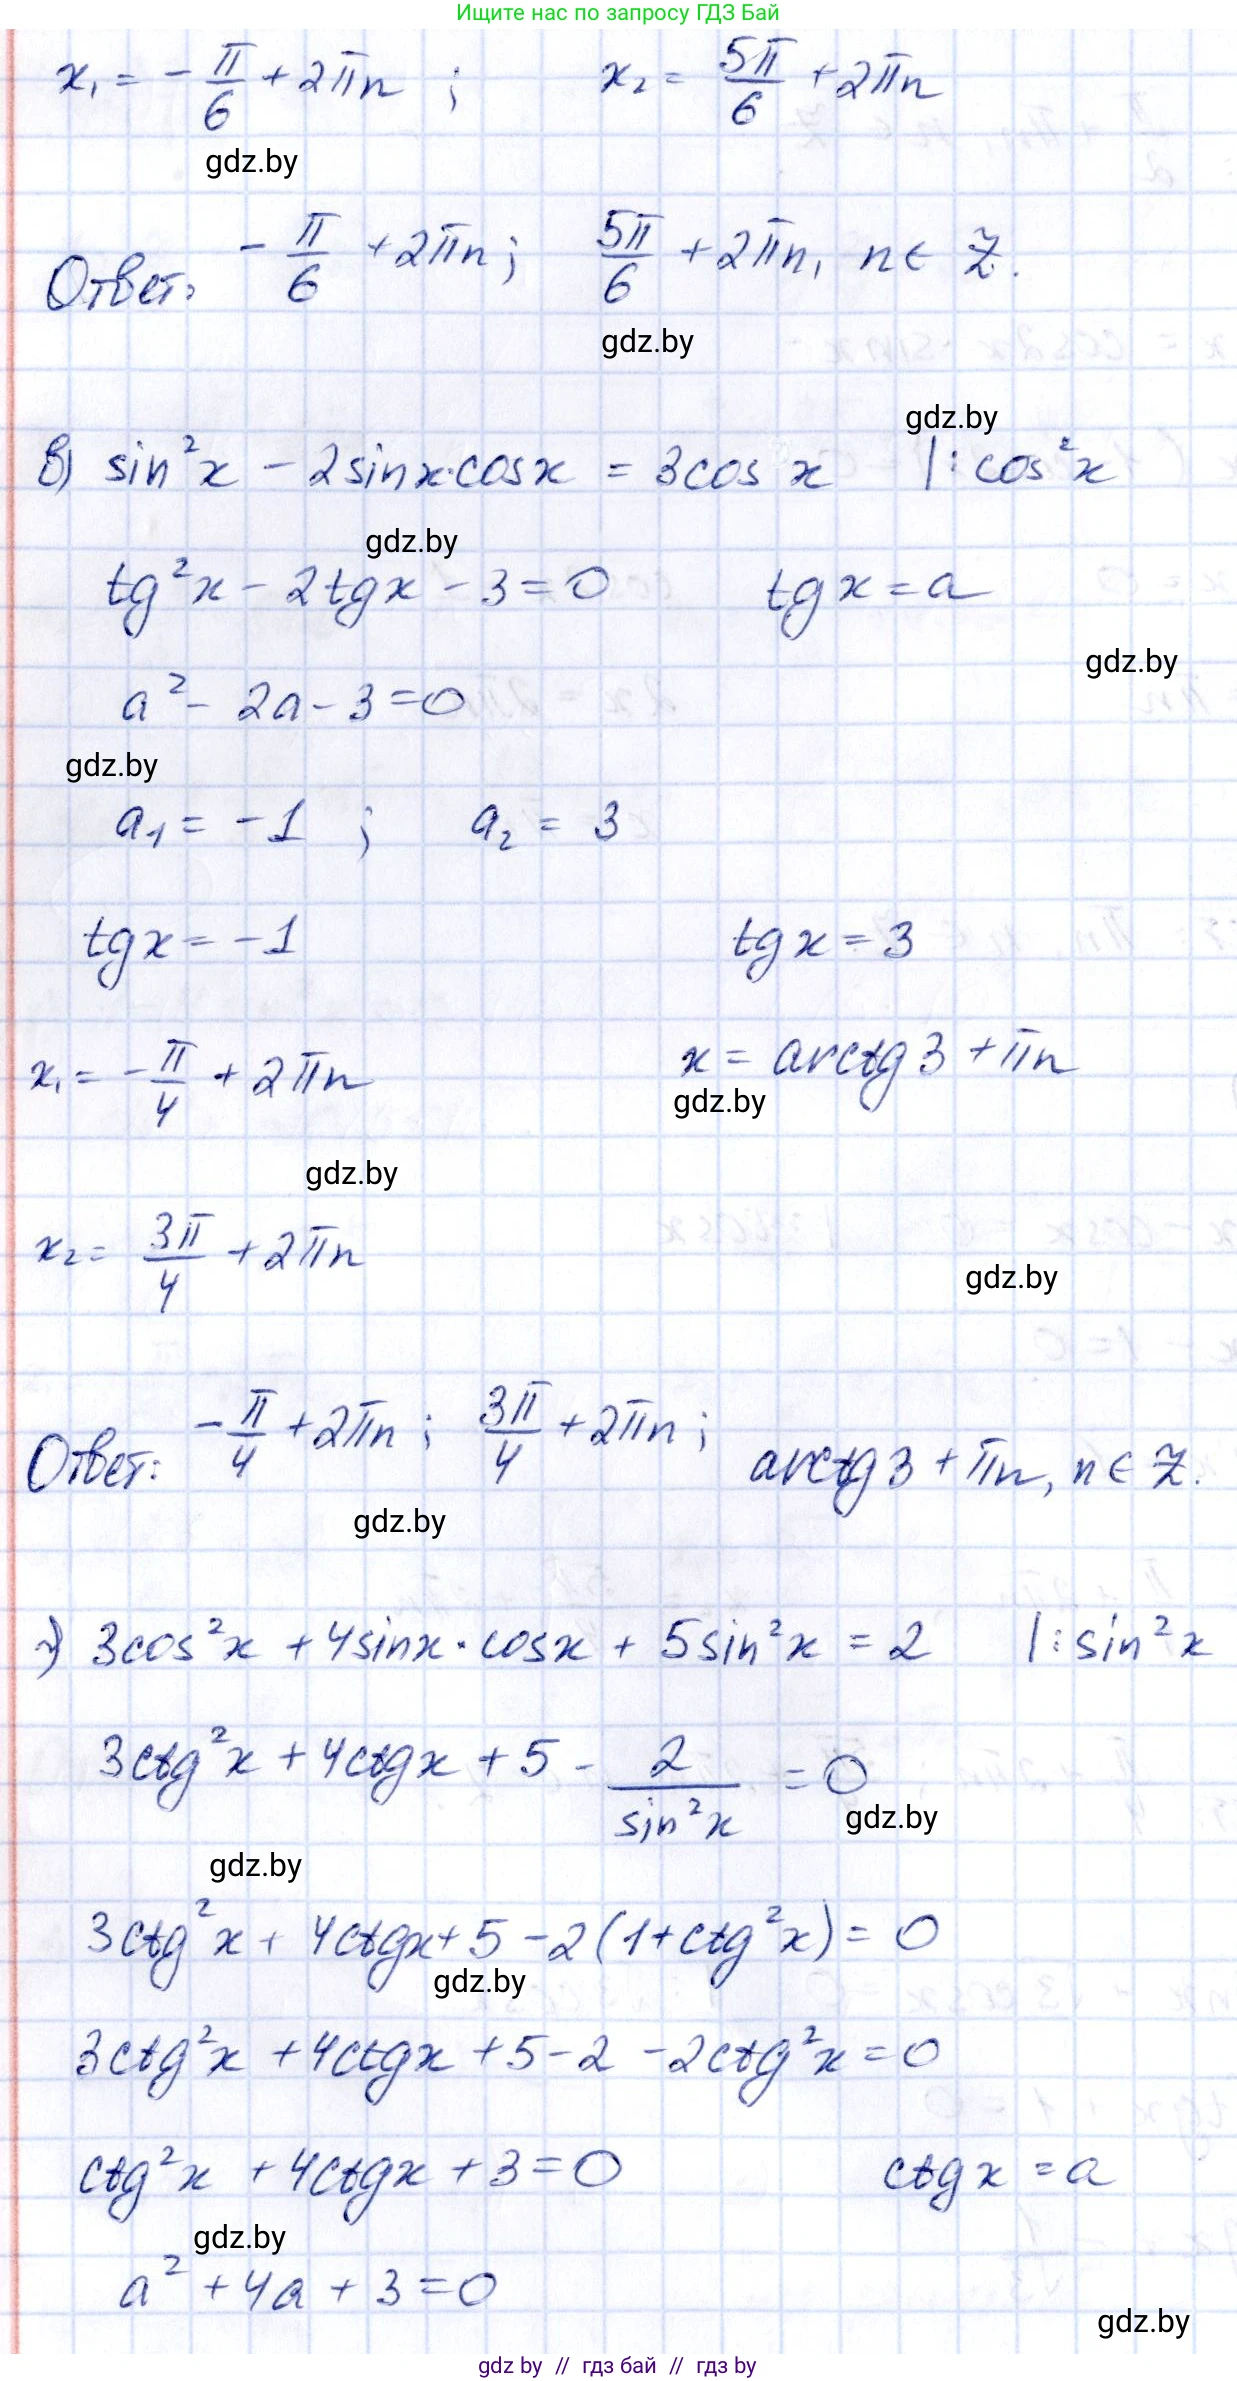 Ищите нас по запросу ГДЗ Бай
x₁ = -π/6 + 2πn ; x₂ = 5π/6 + 2πn
gdz.by
Ответ: -π/6 + 2πn; 5π/6 + 2πn, n ∈ Z.
gdz.by
gdz.by
в) sin²x - 2sinx·cosx = 3cos x |: cos²x
gdz.by
tg²x - 2tgx - 3 = 0 tgx = a
gdz.by
a² - 2a - 3 = 0
gdz.by
a₁ = -1 ; a₂ = 3
tgx = -1 tgx = 3
x₁ = -π/4 + 2πn x = arctg3 + πn
gdz.by
gdz.by
x₂ = 3π/4 + 2πn
gdz.by
Ответ: -π/4 + 2πn; 3π/4 + 2πn; arctg3 + πn, n ∈ Z.
gdz.by
г) 3cos²x + 4sinx·cosx + 5sin²x = 2 |: sin²x
3ctg²x + 4ctgx + 5 - 2/sin²x = 0
gdz.by
gdz.by
3ctg²x + 4ctgx + 5 - 2(1 + ctg²x) = 0
gdz.by
3ctg²x + 4ctgx + 5 - 2 - 2ctg²x = 0
ctg²x + 4ctgx + 3 = 0 ctgx = a
gdz.by
a² + 4a + 3 = 0
gdz.by
gdz by // гдз бай // гдз by